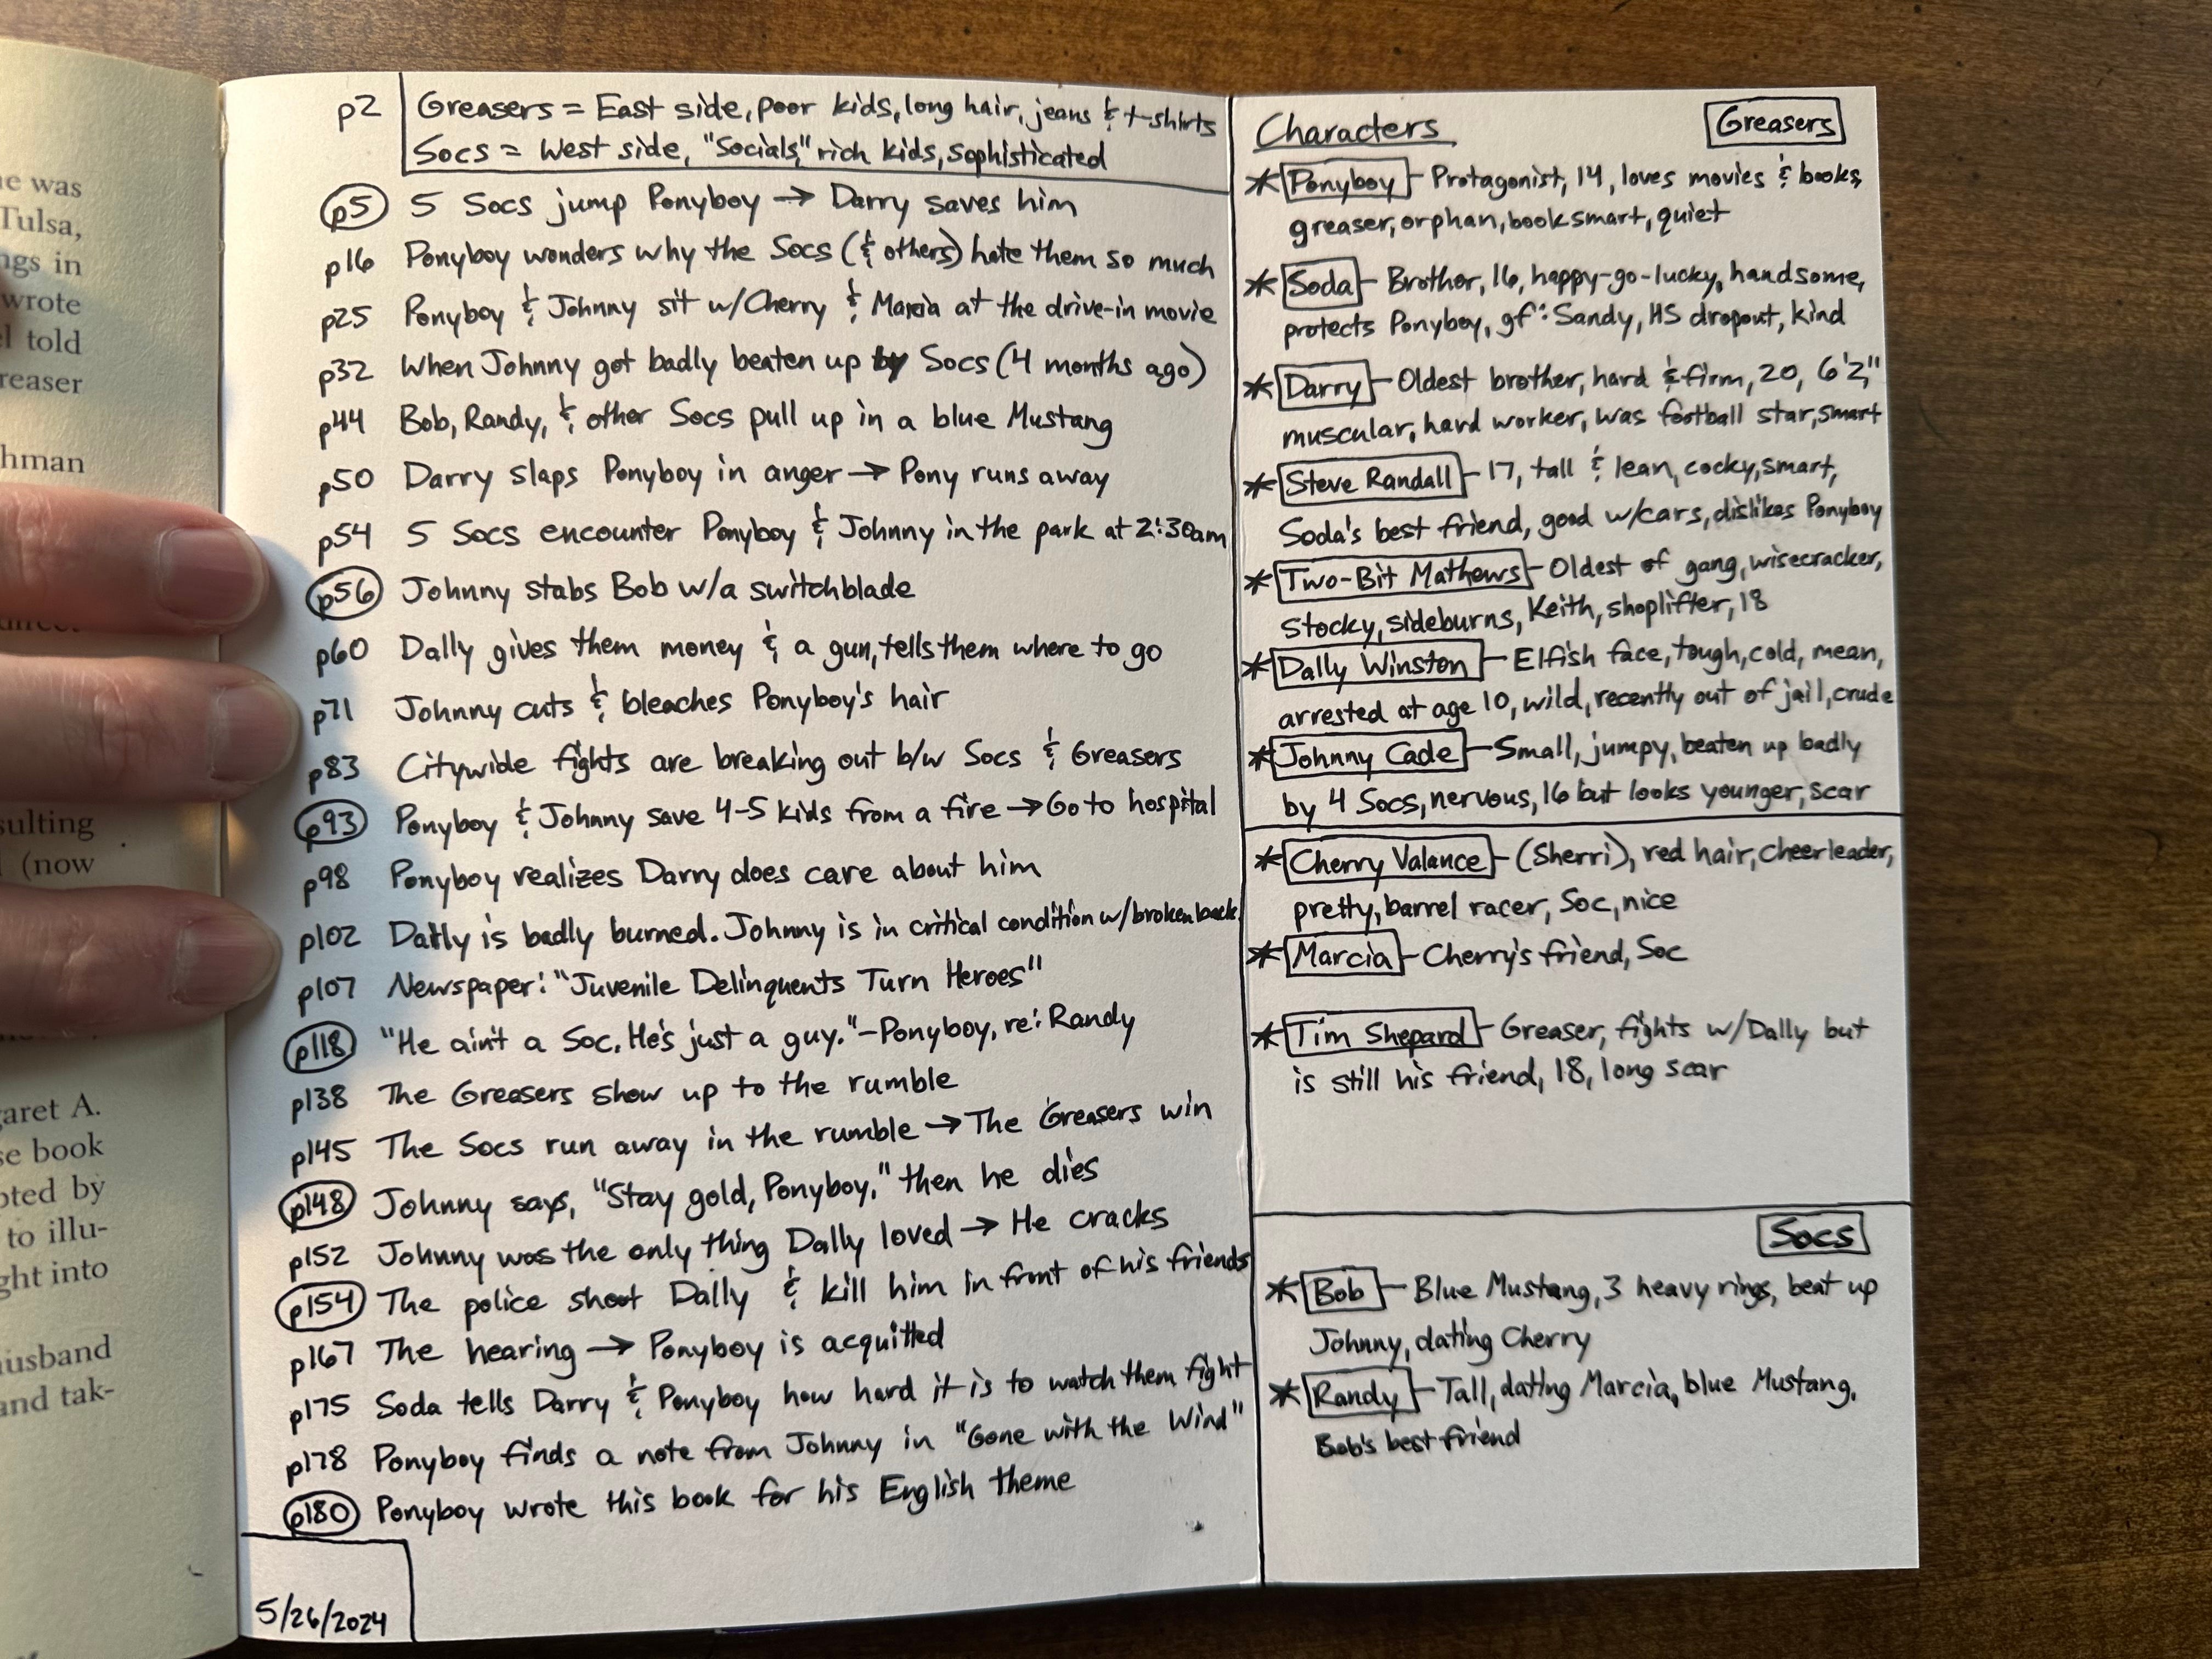 ne was
Tulsa,
ngs in
wrote
el told
reaser
hman
sulting
l (now
garet A.
se book
pted by
to illu-
ght into
husband
and tak-
p2 Greasers = East side, poor kids, long hair, jeans & t-shirts
Socs = West side, "Socials," rich kids, sophisticated
p5 5 Socs jump Ponyboy → Darry saves him
p16 Ponyboy wonders why the Socs (& others) hate them so much
p25 Ponyboy & Johnny sit w/Cherry & Marcia at the drive-in movie
p32 When Johnny got badly beaten up by Socs (4 months ago)
p44 Bob, Randy, & other Socs pull up in a blue Mustang
p50 Darry slaps Ponyboy in anger → Pony runs away
p54 5 Socs encounter Ponyboy & Johnny in the park at 2:30am
p56 Johnny stabs Bob w/a switchblade
p60 Dally gives them money & a gun, tells them where to go
p71 Johnny cuts & bleaches Ponyboy's hair
p83 Citywide fights are breaking out b/w Socs & Greasers
p93 Ponyboy & Johnny save 4-5 kids from a fire → Go to hospital
p98 Ponyboy realizes Darry does care about him
p102 Dally is badly burned. Johnny is in critical condition w/broken back.
p107 Newspaper: "Juvenile Delinquents Turn Heroes"
p118 "He ain't a Soc. He's just a guy." -Ponyboy, re: Randy
p138 The Greasers show up to the rumble
p145 The Socs run away in the rumble → The Greasers win
p148 Johnny says, "Stay gold, Ponyboy," then he dies
p152 Johnny was the only thing Dally loved → He cracks
p154 The police shoot Dally & kill him in front of his friends
p167 The hearing → Ponyboy is acquitted
p175 Soda tells Darry & Ponyboy how hard it is to watch them fight
p178 Ponyboy finds a note from Johnny in "Gone with the Wind"
p180 Ponyboy wrote this book for his English theme
5/26/2024
Characters Greasers
* Ponyboy - Protagonist, 14, loves movies & books,
greaser, orphan, book smart, quiet
* Soda - Brother, 16, happy-go-lucky, handsome,
protects Ponyboy, gf: Sandy, HS dropout, kind
* Darry - Oldest brother, hard & firm, 20, 6'2,"
muscular, hard worker, was football star, smart
* Steve Randall - 17, tall & lean, cocky, smart,
Soda's best friend, good w/cars, dislikes Ponyboy
* Two-Bit Mathews - Oldest of gang, wisecracker,
stocky, sideburns, Keith, shoplifter, 18
* Dally Winston - Elfish face, tough, cold, mean,
arrested at age 10, wild, recently out of jail, crude
* Johnny Cade - Small, jumpy, beaten up badly
by 4 Socs, nervous, 16 but looks younger, scar
* Cherry Valance - (Sherri), red hair, cheerleader,
pretty, barrel racer, Soc, nice
* Marcia - Cherry's friend, Soc
* Tim Shepard - Greaser, fights w/Dally but
is still his friend, 18, long scar
Socs
* Bob - Blue Mustang, 3 heavy rings, beat up
Johnny, dating Cherry
* Randy - Tall, dating Marcia, blue Mustang,
Bob's best friend